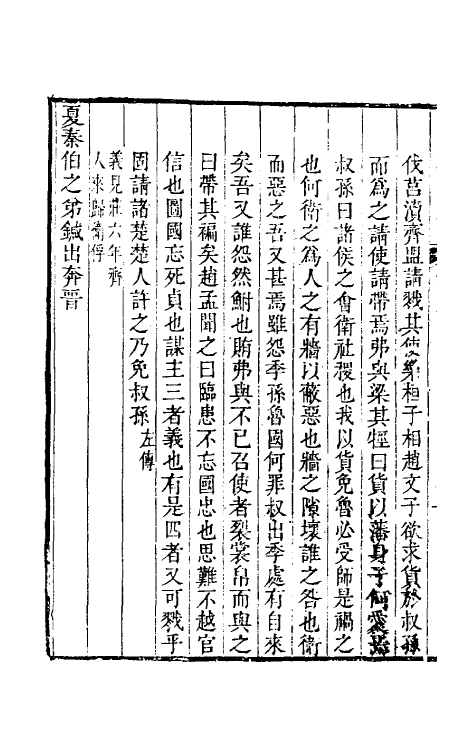 伐莒瀆齊盟請戮其使樂桓子相趙文子欲求貨於叔孫
而為之請使請帶焉弗與梁其踁曰貨以藩身子何愛焉
叔孫曰諸侯之會衛社稷也我以貨免魯必受師是禍之
也何衛之為人之有牆以蔽惡也牆之隙壞誰之咎也衛
而惡之吾又甚焉雖怨季孫魯國何罪叔出季處有自來
矣吾又誰怨然鮒也賄弗與不已召使者裂裳帛而與之
曰帶其褊矣趙孟聞之曰臨患不忘國忠也思難不越官
信也圖國忘死貞也謀主三者義也有是四者又可戮乎
固請諸楚楚人許之乃免叔孫左傳
義見莊六年齊
人來歸衛俘
夏秦伯之弟鍼出奔晉